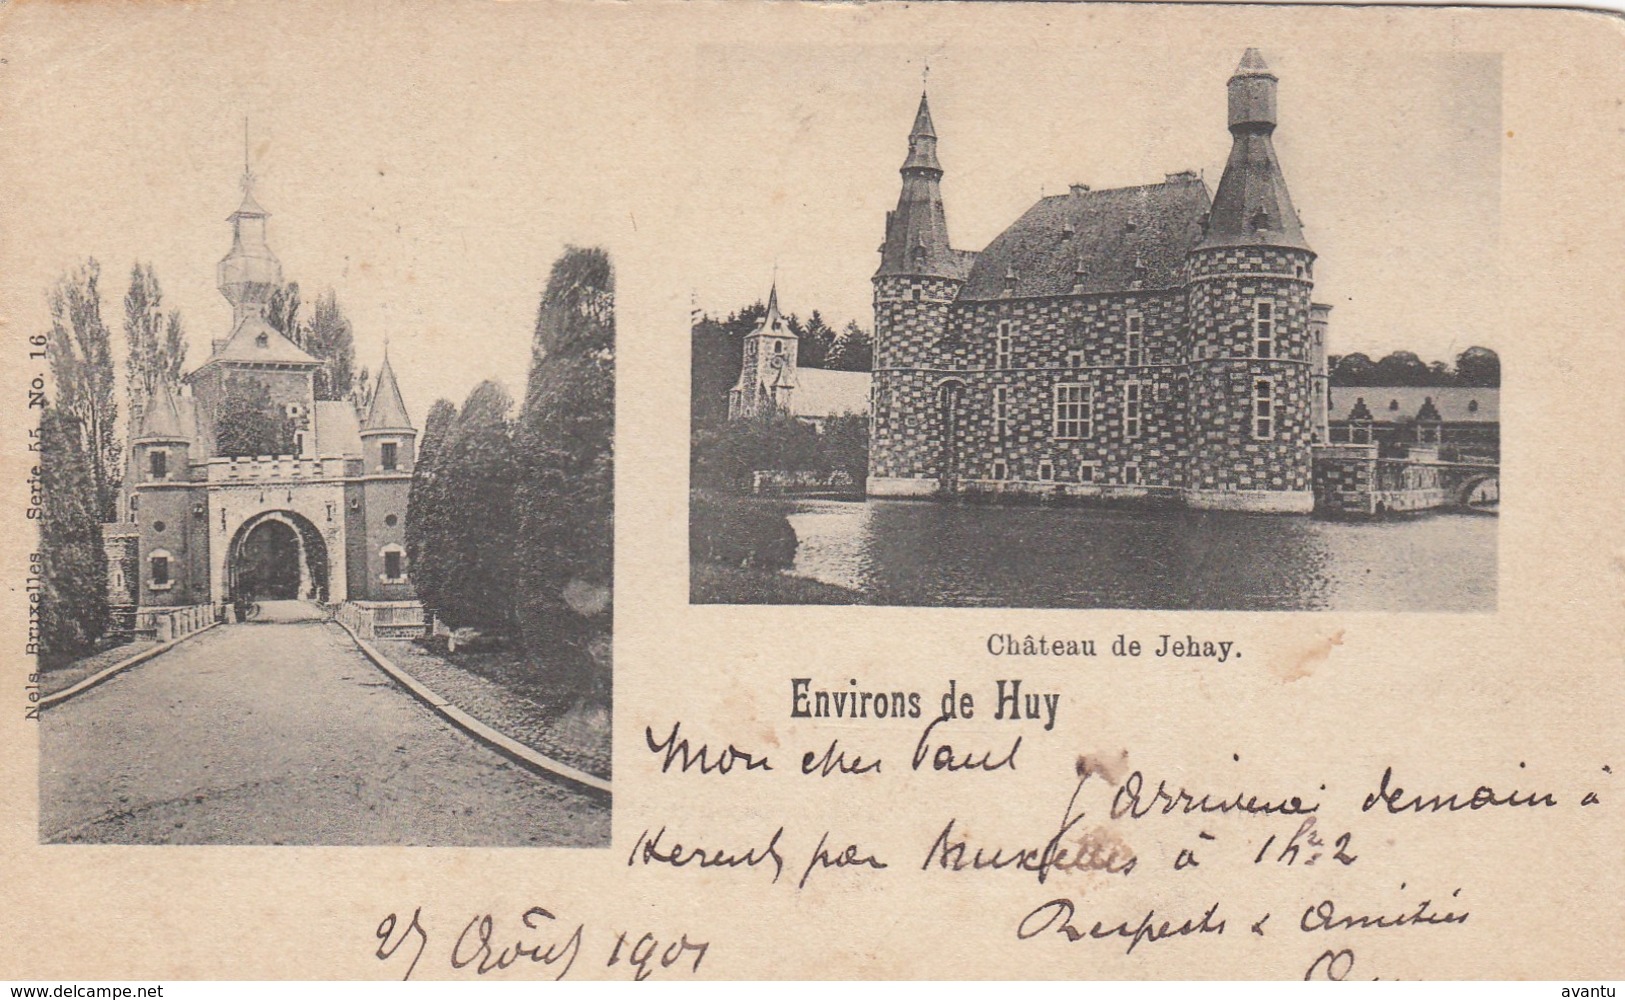 Nels, Bruxelles. Serie 55, No. 16
Château de Jehay.
Environs de Huy
Mon cher Paul
J'arriverai demain à
Herent par Bruxelles à 1 h 1/2
Respects & amitiés
27 Août 1901
www.delcampe.net
avantu